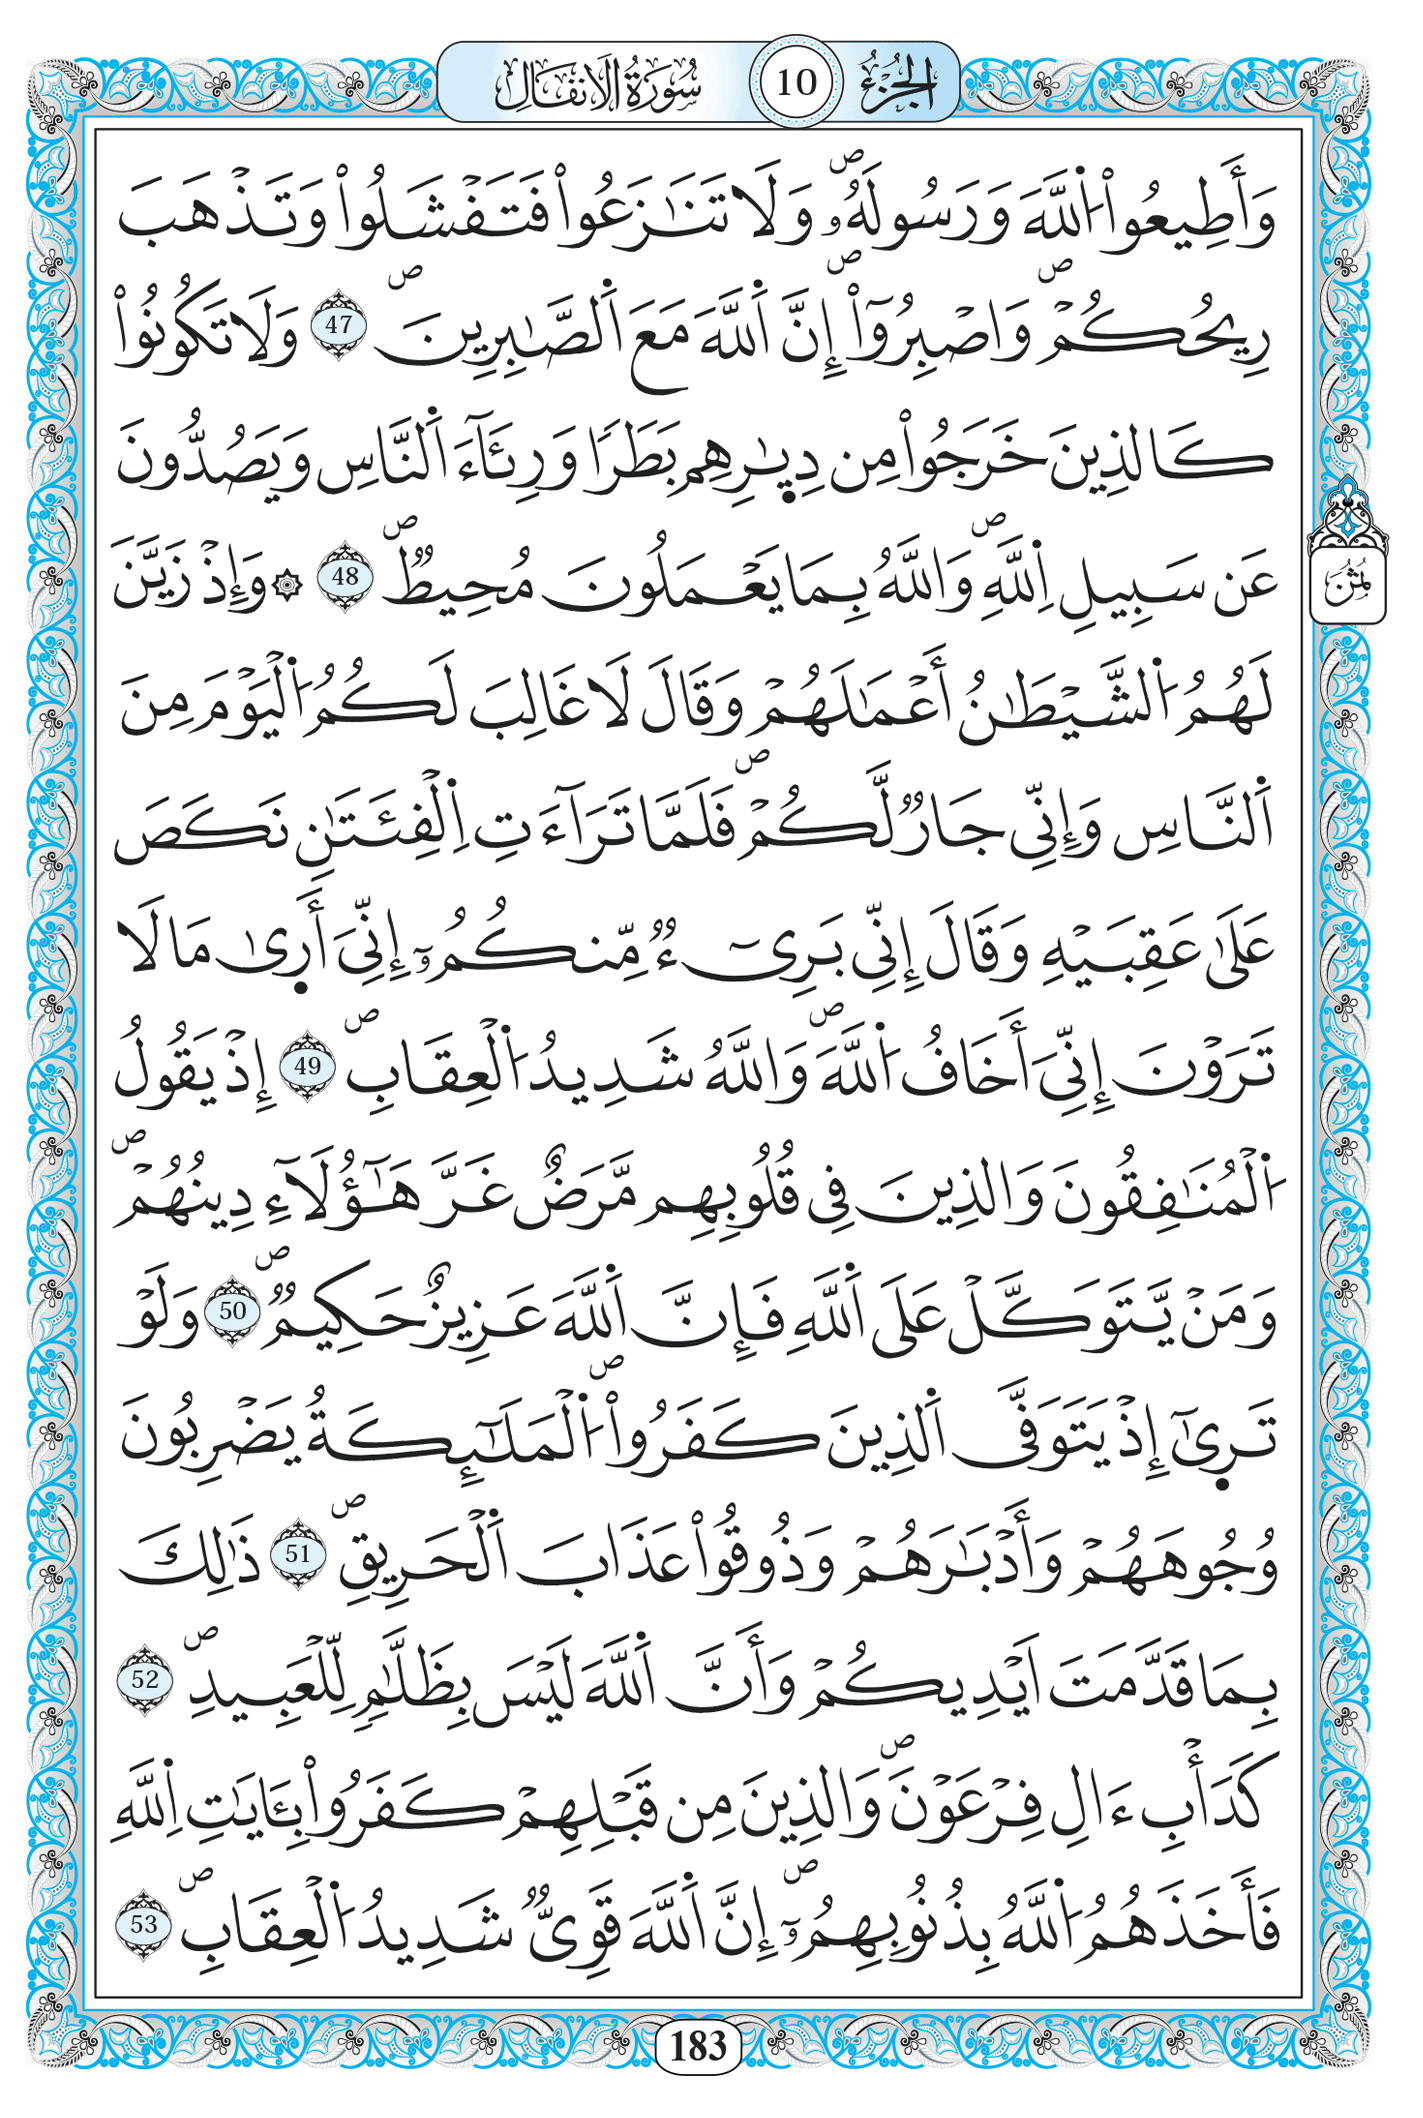 الجزء 10 سورة الانفال
وَأَطِيعُواْ اُ۬للَّهَ وَرَسُولَهُۥۖ وَلَا تَنَٰزَعُواْ فَتَفْشَلُواْ وَتَذْهَبَ
رِيحُكُمْۖ وَاصْبِرُوٓاْۖ إِنَّ اَ۬للَّهَ مَعَ اَ۬لصَّٰبِرِينَۖ 47 وَلَا تَكُونُواْ
كَالذِينَ خَرَجُواْ مِن دِيٰ۪رِهِم بَطَرًا وَرِئَآءَ اَ۬لنَّاسِ وَيَصُدُّونَ
عَن سَبِيلِ اِ۬للَّهِۖ وَاللَّهُ بِمَا يَعْمَلُونَ مُحِيطٌۖ 48 ۞ وَإِذْ زَيَّنَ
لَهُمُ اُ۬لشَّيْطَٰنُ أَعْمَٰلَهُمْ وَقَالَ لَا غَالِبَ لَكُمُ اُ۬لْيَوْمَ مِنَ
اَ۬لنَّاسِ وَإِنِّي جَارٌ لَّكُمْۖ فَلَمَّا تَرَآءَتِ اِ۬لْفِئَتَٰنِ نَكَصَ
عَلَىٰ عَقِبَيْهِ وَقَالَ إِنِّي بَرِيٓءٌ مِّنكُمُۥٓ إِنِّيَ أَر۪ىٰ مَا لَا
تَرَوْنَ إِنِّيَ أَخَافُ اُ۬للَّهَۖ وَاللَّهُ شَدِيدُ اُ۬لْعِقَابِۖ 49 إِذْ يَقُولُ
اُ۬لْمُنَٰفِقُونَ وَالذِينَ فِي قُلُوبِهِم مَّرَضٌ غَرَّ هَٰٓؤُلَآءِ دِينُهُمْۖ
وَمَنْ يَّتَوَكَّلْ عَلَى اَ۬للَّهِ فَإِنَّ اَ۬للَّهَ عَزِيزٌ حَكِيمٌۖ 50 وَلَوْ
تَر۪ىٰٓ إِذْ يَتَوَفَّى اَ۬لذِينَ كَفَرُواْۖ اُ۬لْمَلَٰٓئِكَةُ يَضْرِبُونَ
وُجُوهَهُمْ وَأَدْبَٰرَهُمْ وَذُوقُواْ عَذَابَ اَ۬لْحَرِيقِۖ 51 ذَٰلِكَ
بِمَا قَدَّمَتَ اَيْدِيكُمْ وَأَنَّ اَ۬للَّهَ لَيْسَ بِظَلَّٰمٍ لِّلْعَبِيدِۖ 52
كَدَأْبِ ءَالِ فِرْعَوْنَۖ وَالذِينَ مِن قَبْلِهِمْ كَفَرُواْ بِـَٔايَٰتِ اِ۬للَّهِ
فَأَخَذَهُمُ اُ۬للَّهُ بِذُنُوبِهِمُۥٓۖ إِنَّ اَ۬للَّهَ قَوِيٌّ شَدِيدُ اُ۬لْعِقَابِۖ 53
ثمن
183